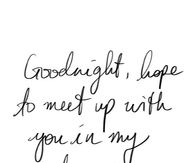 Goodnight, hope
to meet up with
you in my